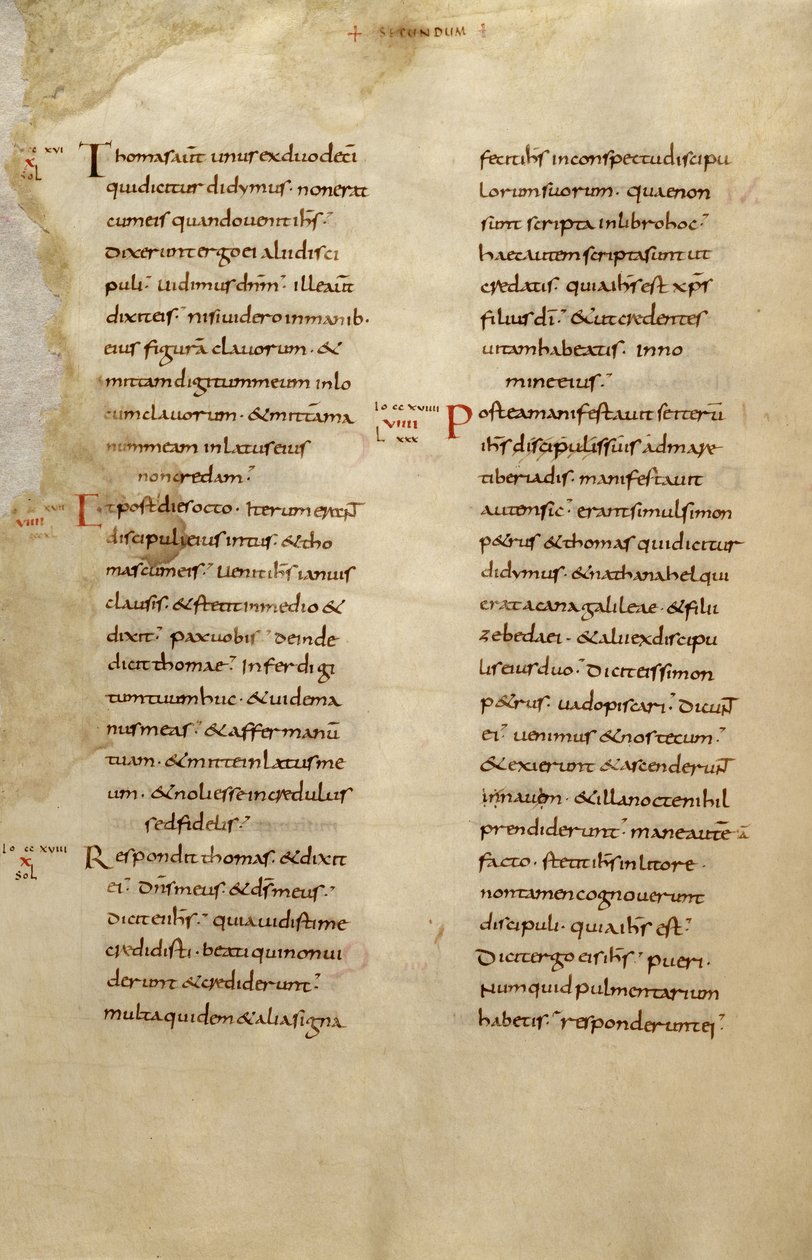 + SECUNDUM +
cc xvi
x
sol
Thomas aut̄ unus ex duodecī
qui dicitur didymus · non erat
cum eis quando uenit ih̄s ·
Dixerunt ergo ei alii disci
puli · Uidimus dnm̄ · ille aut̄
dixit eis · nisi uidero in manib·
eius figurā clauorum · &
mittam digitum meum in lo
cum clauorum · & mittā ma
num meam in latus eius
non credam ·
xvii
viiii
Et post dies octo · Iterum erant
discipuli eius intus · & tho
mas cum eis · Uenit ih̄s ianuis
clausis · & stetit in medio &
dixit · pax uobis · Deinde
dicit thomae · Infer digi
tum tuum huc · & uide ma
nus meas · & affer manū
tuam · & mitte in latus me
um · & noli esse incredulus
sed fidelis ·
Io cc xviii
x
sol
Respondit thomas · & dixit
ei · Dn̄s meus · & ds̄ meus ·
Dicit ei ih̄s · quia uidisti me
credidisti · beati qui non ui
derunt & crediderunt ·
multa quidem & alia signa
fecit ih̄s in conspectu discipu
lorum suorum · quae non
sunt scripta in libro hoc ·
haec autem scripta sunt ut
credatis · quia ih̄s est xp̄s
filius dī · & ut credentes
uitam habeatis · In no
mine eius ·
Io cc xviiii
viiii
L xxx
Postea manifestauit se iterū
ih̄s discipulis suis ad mare
tiberiadis · manifestauit
autem sic · erant simul simon
p&rus & thomas qui dicitur
didymus · & nathanahel qui
erat a cana galileae · & filii
zebedaei · & alii ex discipu
lis eius duo · Dicit eis simon
p&rus · uado piscari · Dicunt
ei · uenimus & nos tecum ·
& exierunt & ascenderunt
in nauem · & illa nocte nihil
prendiderunt · mane autē ā
facto · stetit ih̄s in litore ·
non tamen cognouerunt
discipuli · quia ih̄s est ·
Dicit ergo eis ih̄s · pueri ·
Numquid pulmentarium
habetis · responderunt ei ·